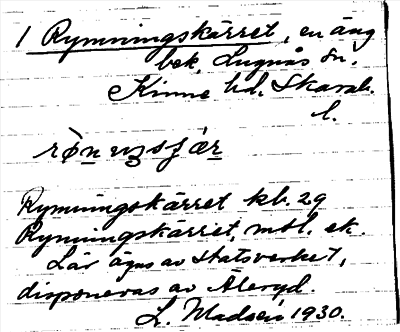 1 Rymningskärret, en äng
bek. Lugnås sn.
Kinne hd. Skarab.
l.
Rymningskärret kb. 29
Rymningskärret, mtl. ek.
Lär ägas av statsverket,
disponeras av Äleryd.
L. Madsén 1930.